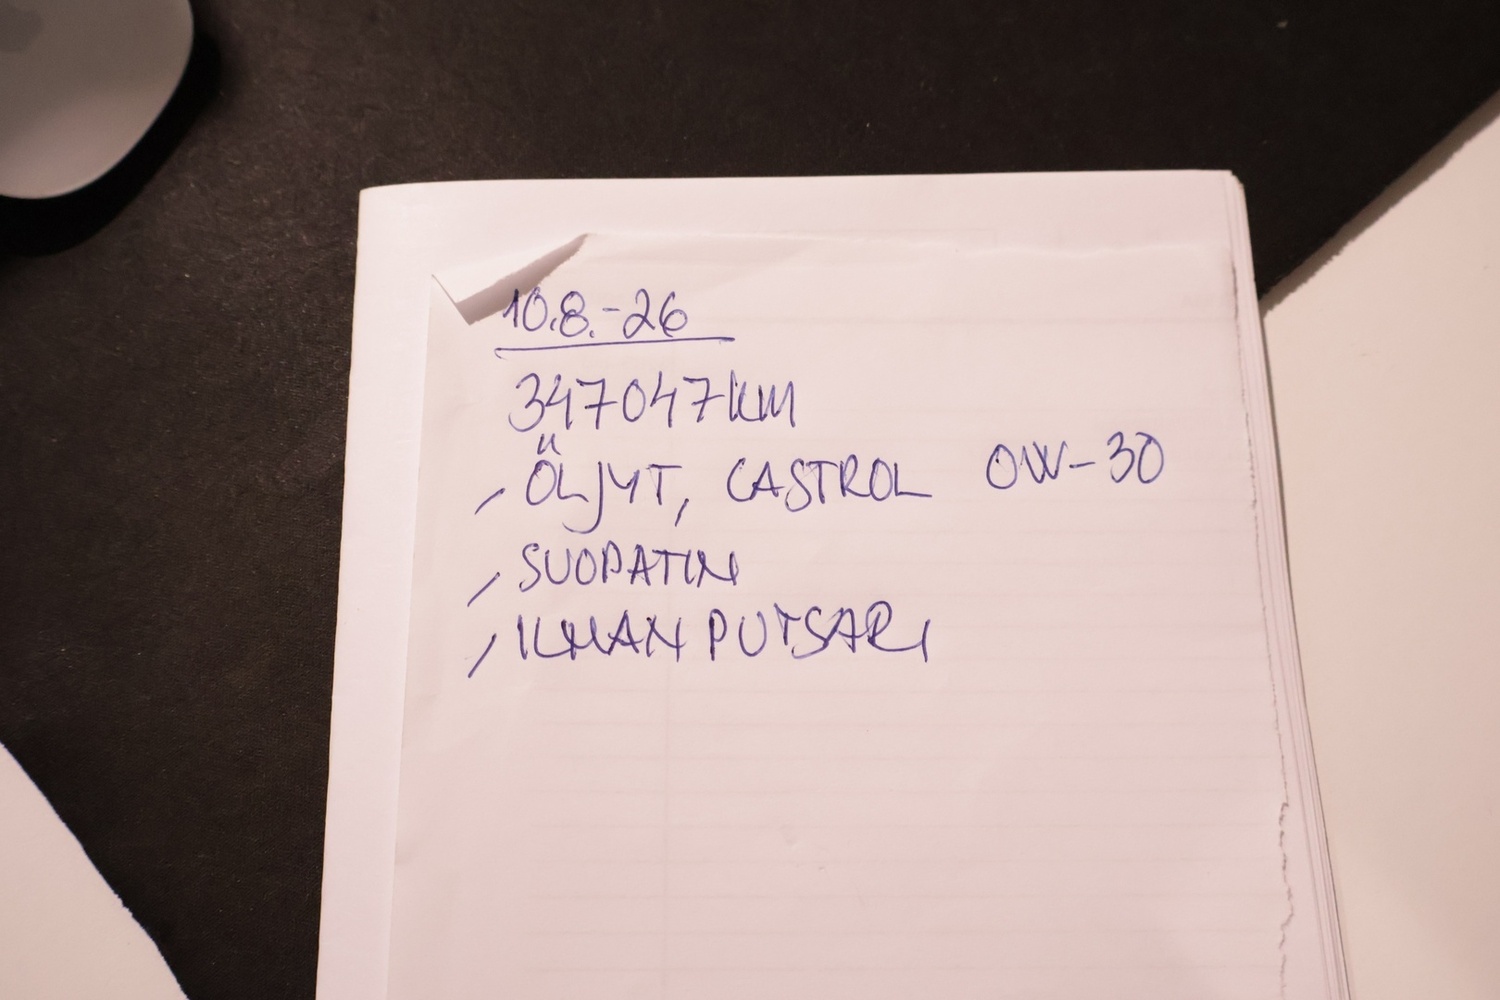 10.8.-26
347047km
, ÖLJYT, CASTROL 0W-30
, SUODATIN
, ILMAN PUTSARI